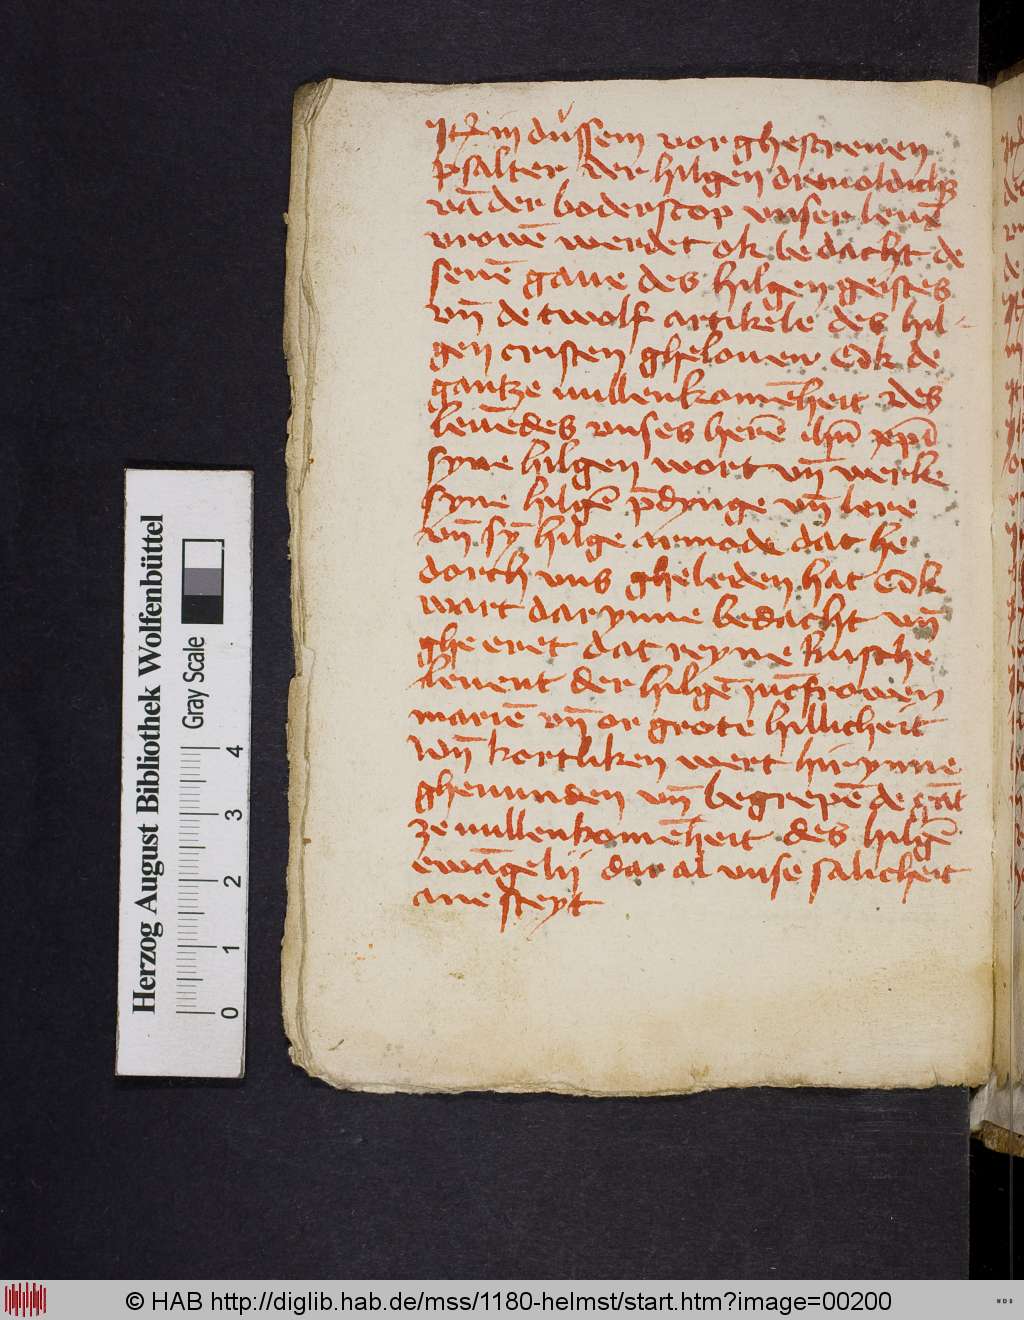 Itē in dussem vorghescreuen
psalter der hilgen dreuoldich̄
vā der boderscop vnser leuē
vrowē werdet ok bedacht de
seuē gaue des hilgen geistes
vn̄ de twolf artikele des hil-
gen cristen ghelouen Ok de
gantze vullenkomēheit des
leuēdes vnses herē ihū xp̄i
syne hilgen wort vn̄ werke
syne hilgē p̄dynge vn̄ lere
vn̄ sȳ hilge armode dat he
dorch vns gheleden hat Ok
wart darynne bedacht vn̄
gheeret dat reyne kusche
leuent der hilgē iūcfrowen
mariē vn̄ or grote hillicheit
Vn̄ kortliken wert hirynne
gheuunden vn̄ begrepē de gāt
ze vullenkomēheit des hilgē
ewāgelij dar al vnse salicheit
ane steyt
Herzog August Bibliothek Wolfenbüttel
Gray Scale
0 1 2 3 4
© HAB http://diglib.hab.de/mss/1180-helmst/start.htm?image=00200